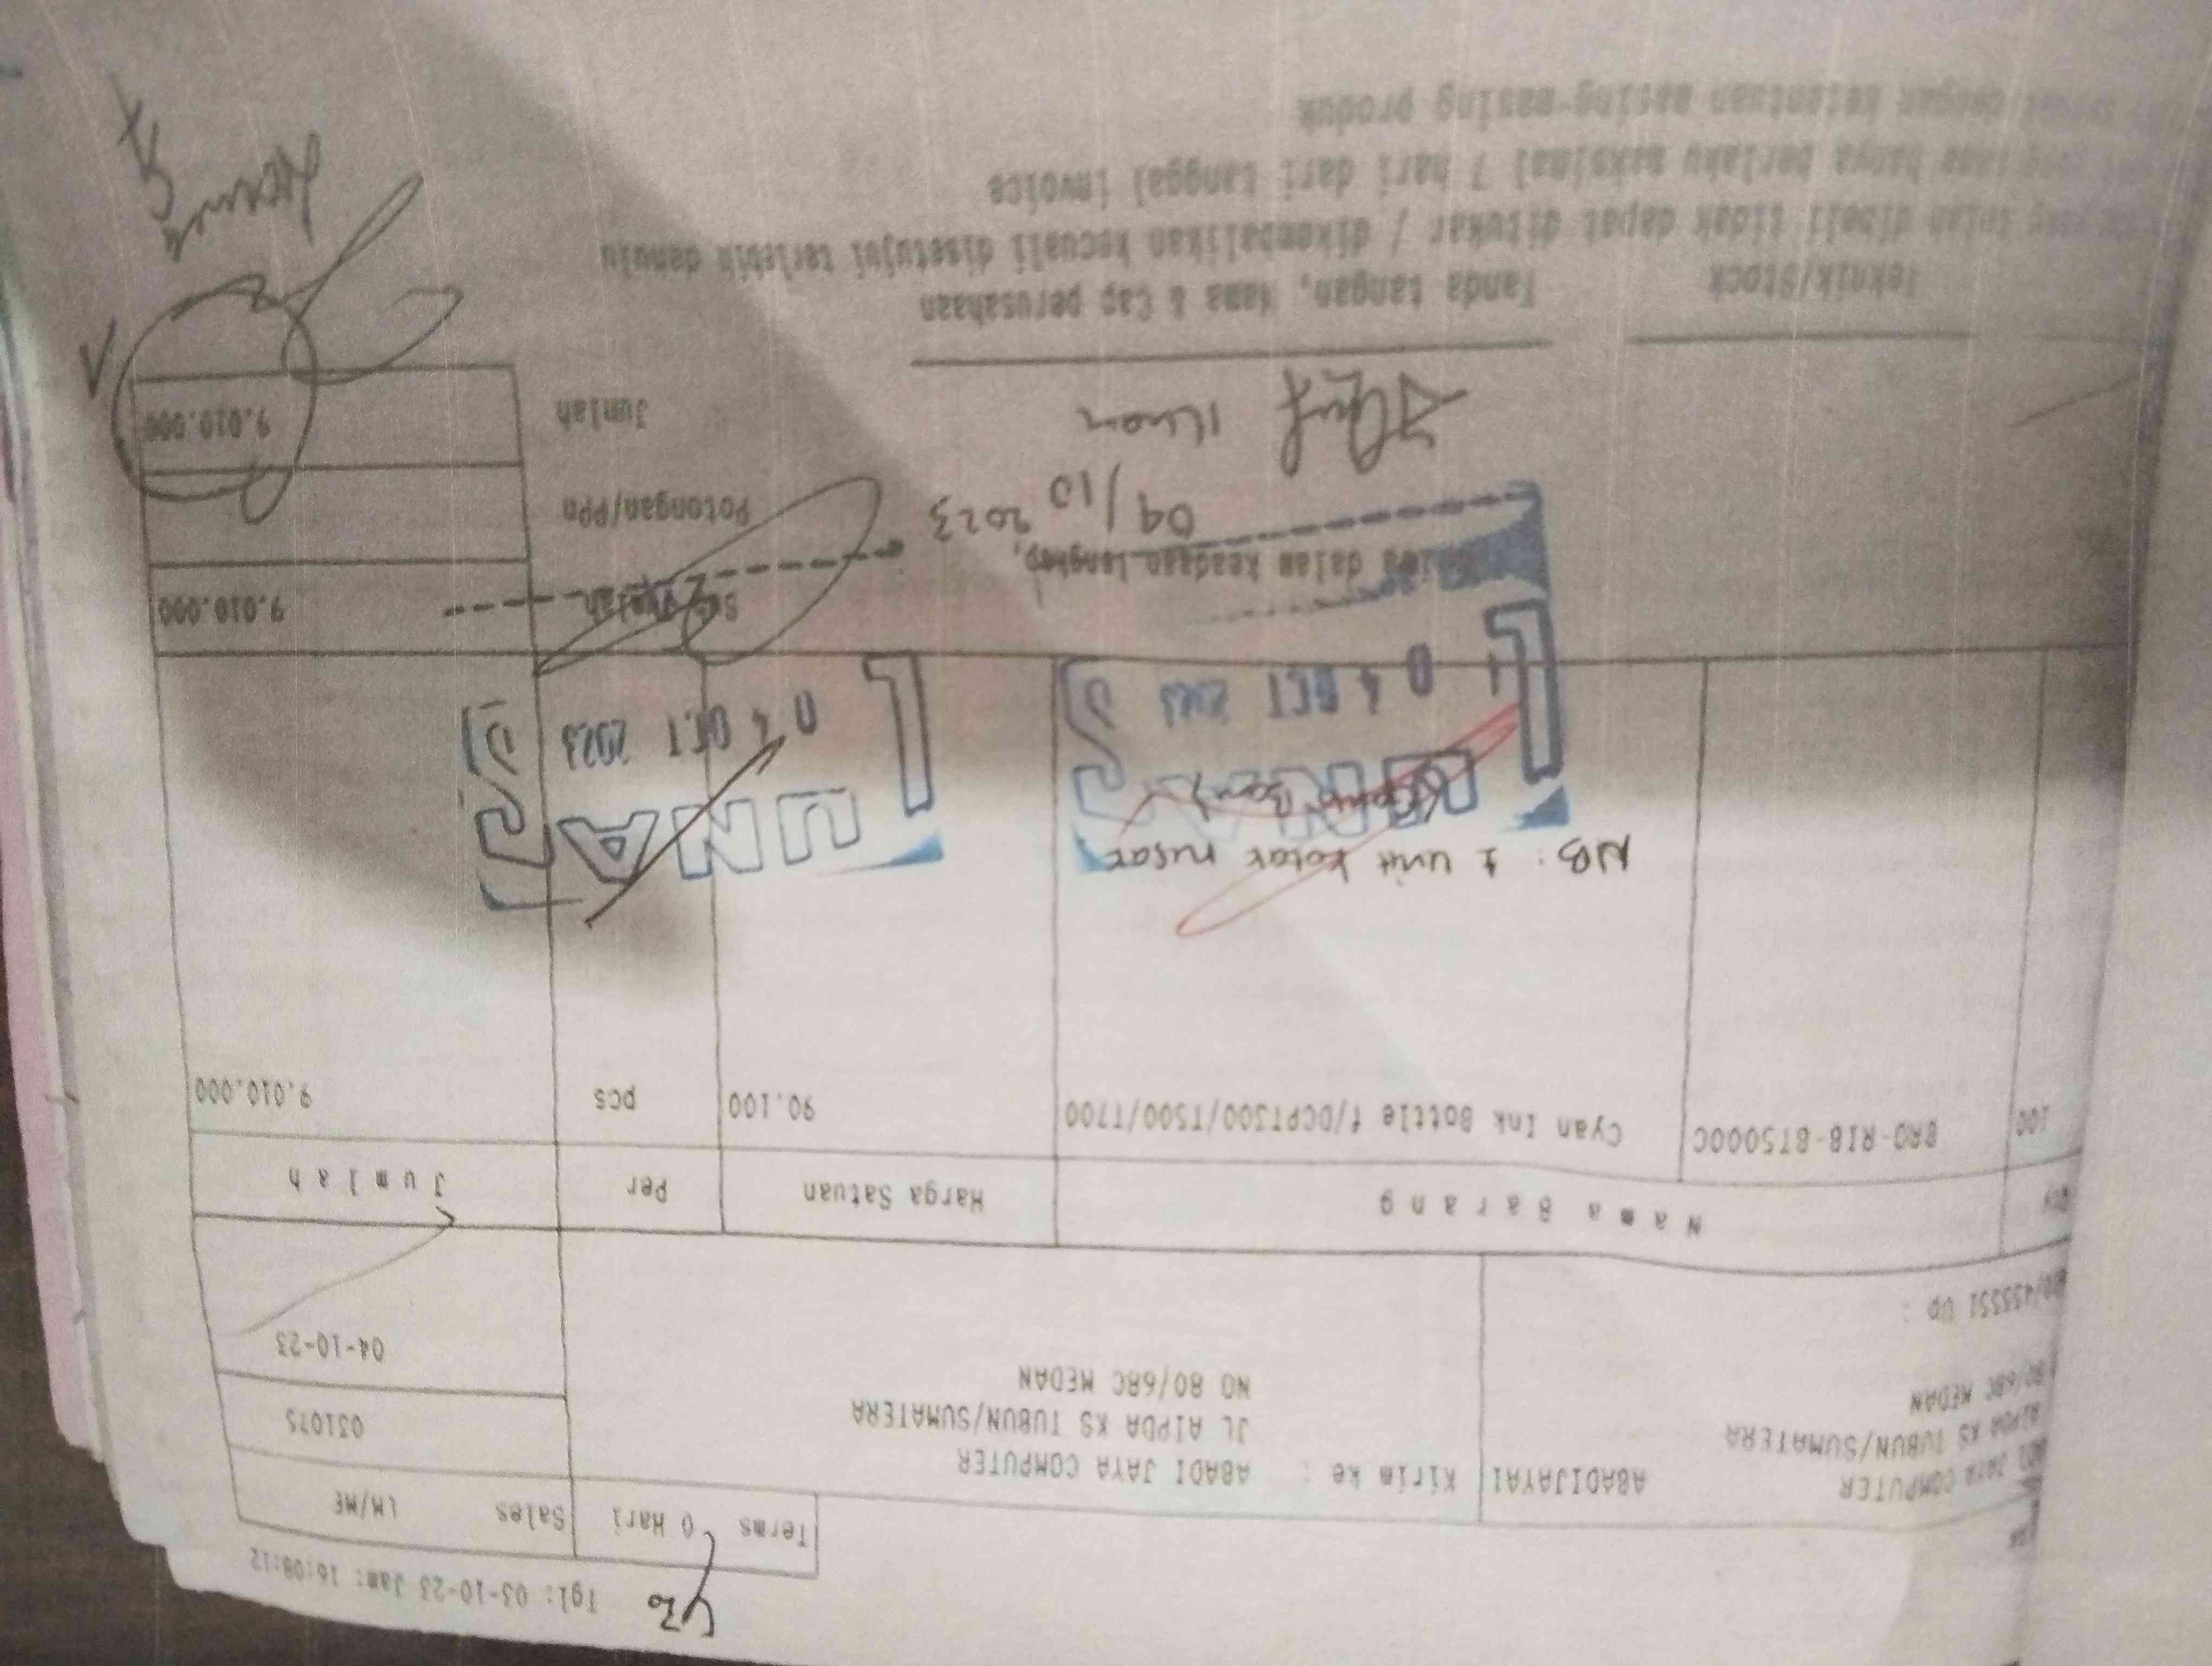 Tgl: 03-10-23 Jam: 16:08:12
Terms 0 Hari Sales LM/ME
COMPUTER ABADIJAYA1 Kirim ke : ABADI JAYA COMPUTER
AIPDA KS TUBUN/SUMATERA JL AIPDA KS TUBUN/SUMATERA 031075
80/68C MEDAN NO 80/68C MEDAN
04-10-23
/455551 Up :
Nama Barang Harga Satuan Per Jumlah
100 BRO-RIB-BT5000C Cyan Ink Bottle f/DCPT300/T500/T700 90.100 pcs 9.010.000
NB: 1 unit kotak rusak
LUNAS
04 OCT 2023
LUNAS
04 OCT 2023
Sub Jumlah 9.010.000
dalam keadaan lengkap,
04/10 2023
Potongan/PPn
Jumlah 9.010.000
Teknik/Stock Tanda tangan, Nama & Cap perusahaan
telah dibeli tidak dapat ditukar / dikembalikan kecuali disetujui terlebih dahulu
hanya berlaku maksimal 7 hari dari tanggal invoice
dengan ketentuan masing-masing produk